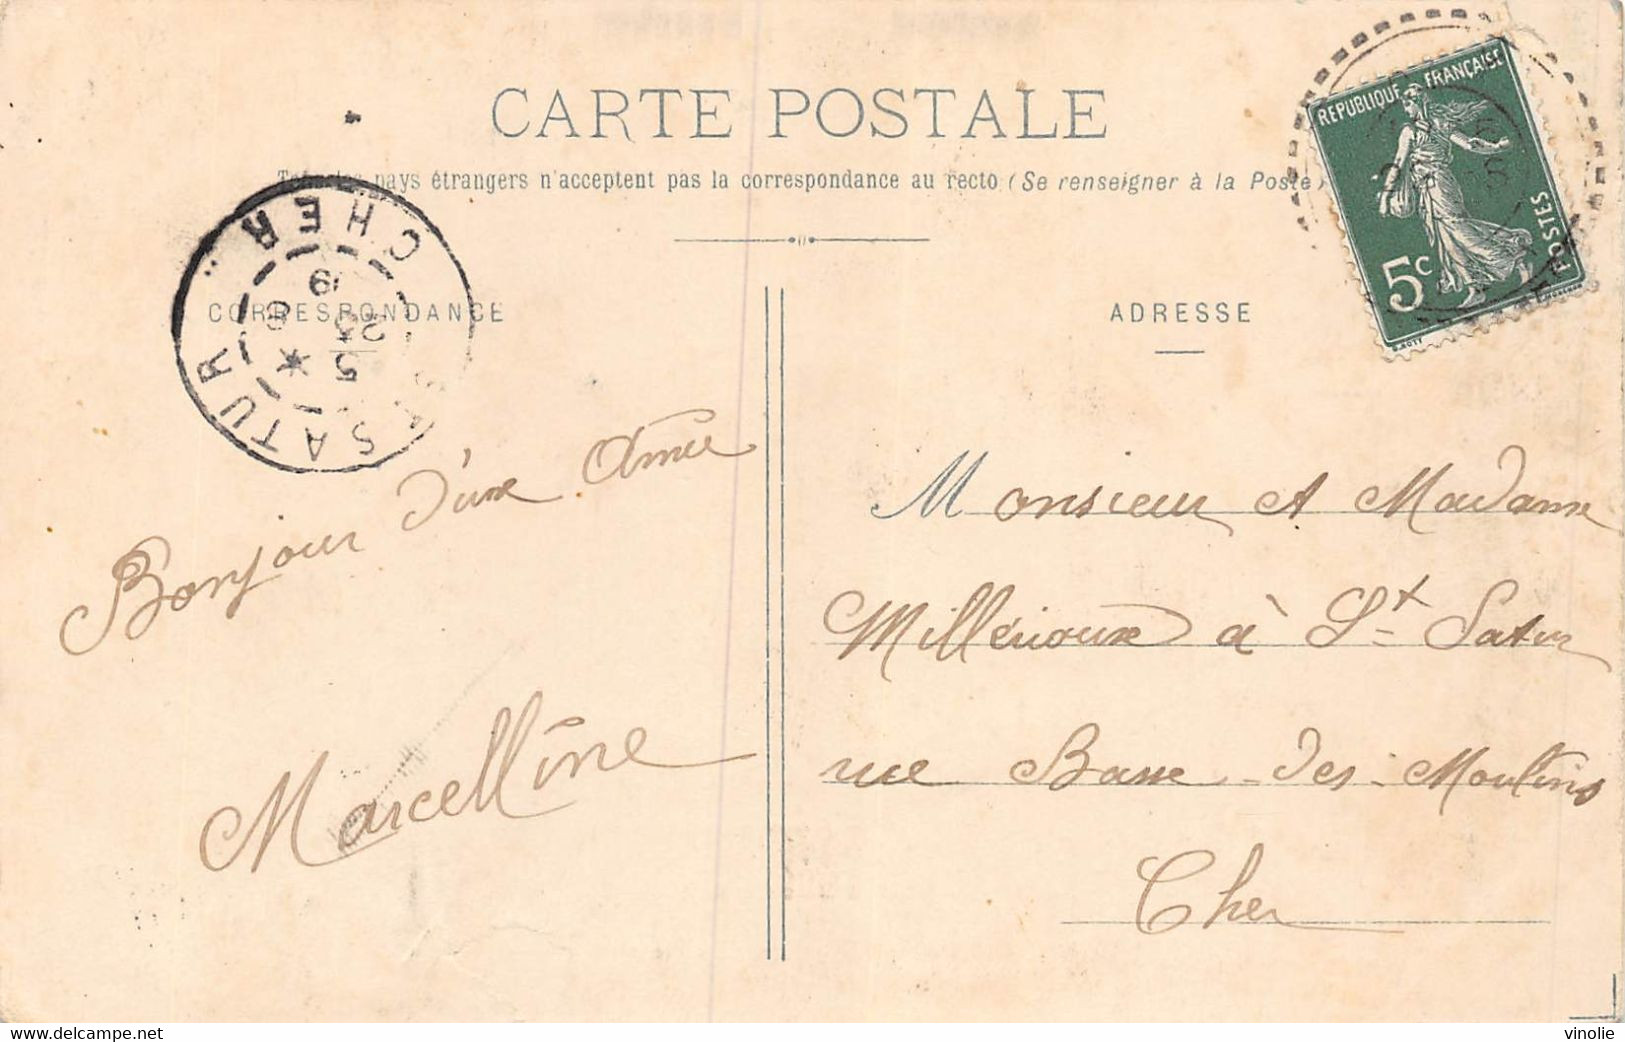 CARTE POSTALE
Tous les pays étrangers n'acceptent pas la correspondance au recto (Se renseigner à la Poste)
REPUBLIQUE FRANÇAISE
5c
POSTES
O. ROTY
ST SATUR
CHER
23
5
CORRESPONDANCE
ADRESSE
Bonjour d'une Amie
Marcelline
Monsieur et Madame
Millérioux à St Satur
rue Basse des Moulins
Cher
www.delcampe.net
vinolie